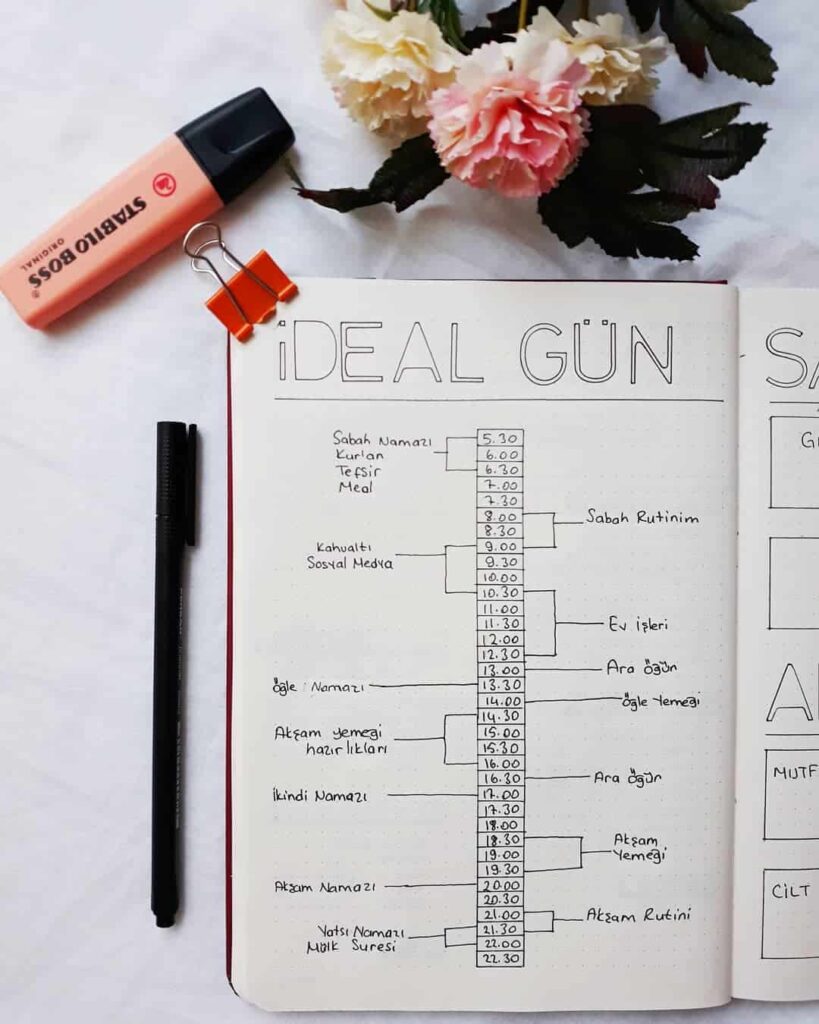 STABILO BOSS
ORIGINAL
İDEAL GÜN
Sabah Namazı
Kur'an
Tefsir
Meal
Kahvaltı
Sosyal Medya
Öğle Namazı
Akşam yemeği
hazırlıkları
İkindi Namazı
Akşam Namazı
Yatsı Namazı
Mülk Suresi
5.30
6.00
6.30
7.00
7.30
8.00
8.30
9.00
9.30
10.00
10.30
11.00
11.30
12.00
12.30
13.00
13.30
14.00
14.30
15.00
15.30
16.00
16.30
17.00
17.30
18.00
18.30
19.00
19.30
20.00
20.30
21.00
21.30
22.00
22.30
Sabah Rutinim
Ev işleri
Ara öğün
Öğle Yemeği
Ara Öğün
Akşam
Yemeği
Akşam Rutini
SA
MUTF
CİLT